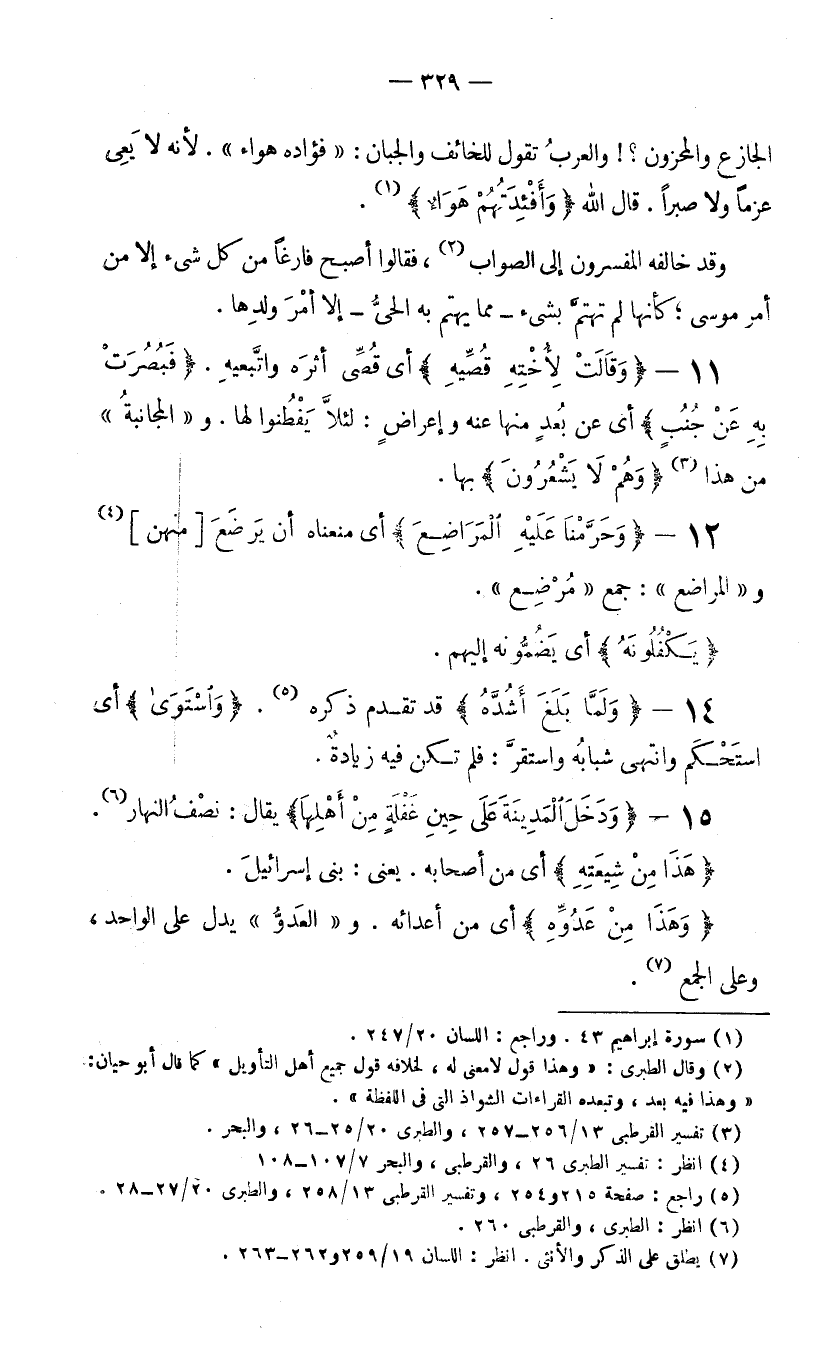 — ٣٢٩ —
الجازع والمحزون ؟! والعربُ تقول للخائف والجبان : « فؤاده هواء » . لأنه لا يَعِى
عزماً ولا صبراً . قال الله ﴿ وَأَفْئِدَتُهُمْ هَوَاءٌ ﴾ (١) .
وقد خالفه المفسرون إلى الصواب (٢) ، فقالوا أصبح فارغاً من كل شىء إلا من
أمر موسى ؛ كأنها لم تهتمَّ بشىء ــ مما يهتم به الحىُّ ــ إلا أمْرَ ولدِها .
١١ — ﴿ وَقَالَتْ لِأُخْتِهِ قُصِّيهِ ﴾ أى قُصِّى أثرَه واتَّبعيهِ . ﴿ فَبَصُرَتْ
بِهِ عَنْ جُنُبٍ ﴾ أى عن بُعدٍ منها عنه وإعراضٍ : لئلاَّ يَفْطُنوا لها . و « المجانبةُ »
من هذا (٣) ﴿ وَهُمْ لَا يَشْعُرُونَ ﴾ بها .
١٢ — ﴿ وَحَرَّمْنَا عَلَيْهِ ٱلْمَرَاضِعَ ﴾ أى منعناه أن يَرضَعَ [ منهن ] (٤)
و « المراضع » : جمع « مُرْضِع » .
﴿ يَكْفُلُونَهُ ﴾ أى يَضُمُّونه إليهم .
١٤ — ﴿ وَلَمَّا بَلَغَ أَشُدَّهُ ﴾ قد تقدم ذكره (٥) . ﴿ وَٱسْتَوَىٰ ﴾ أى
استَحْكَم وانتهى شبابُه واستقرَّ : فلم تكن فيه زيادةٌ .
١٥ — ﴿ وَدَخَلَ ٱلْمَدِينَةَ عَلَى حِينِ غَفْلَةٍ مِنْ أَهْلِهَا﴾ يقال : نصْفُ النهار(٦) .
﴿ هَذَا مِنْ شِيعَتِهِ ﴾ أى من أصحابه . يعنى : بنى إسرائيلَ .
﴿ وَهَذَا مِنْ عَدُوِّهِ ﴾ أى من أعدائه . و « العَدوُّ » يدل على الواحد ،
وعلى الجمع (٧) .
(١) سورة إبراهيم ٤٣ . وراجع : اللسان ٢٠/٢٤٧ .
(٢) وقال الطبرى : « وهذا قول لامعنى له ، لخلافه قول جميع أهل التأويل » كما قال أبو حيان :
« وهذا فيه بعد ، وتبعده القراءات الشواذ التى فى اللفظة » .
(٣) تفسير القرطبى ١٣/٢٥٦ــ٢٥٧ ، والطبرى ٢٠/٢٥ــ٢٦ ، والبحر .
(٤) انظر : تفسير الطبرى ٢٦ ، والقرطبى ، والبحر ٧/١٠٧ــ١٠٨
(٥) راجع : صفحة ٢١٥و٢٥٤ ، وتفسير القرطبى ١٣/٢٥٨ ، والطبرى ٢٠/٢٧ــ٢٨ .
(٦) انظر : الطبرى ، والقرطبى ٢٦٠ .
(٧) يطلق على الذكر والأنثى . انظر : اللسان ١٩/٢٥٩و٢٦٢ــ٢٦٣ .